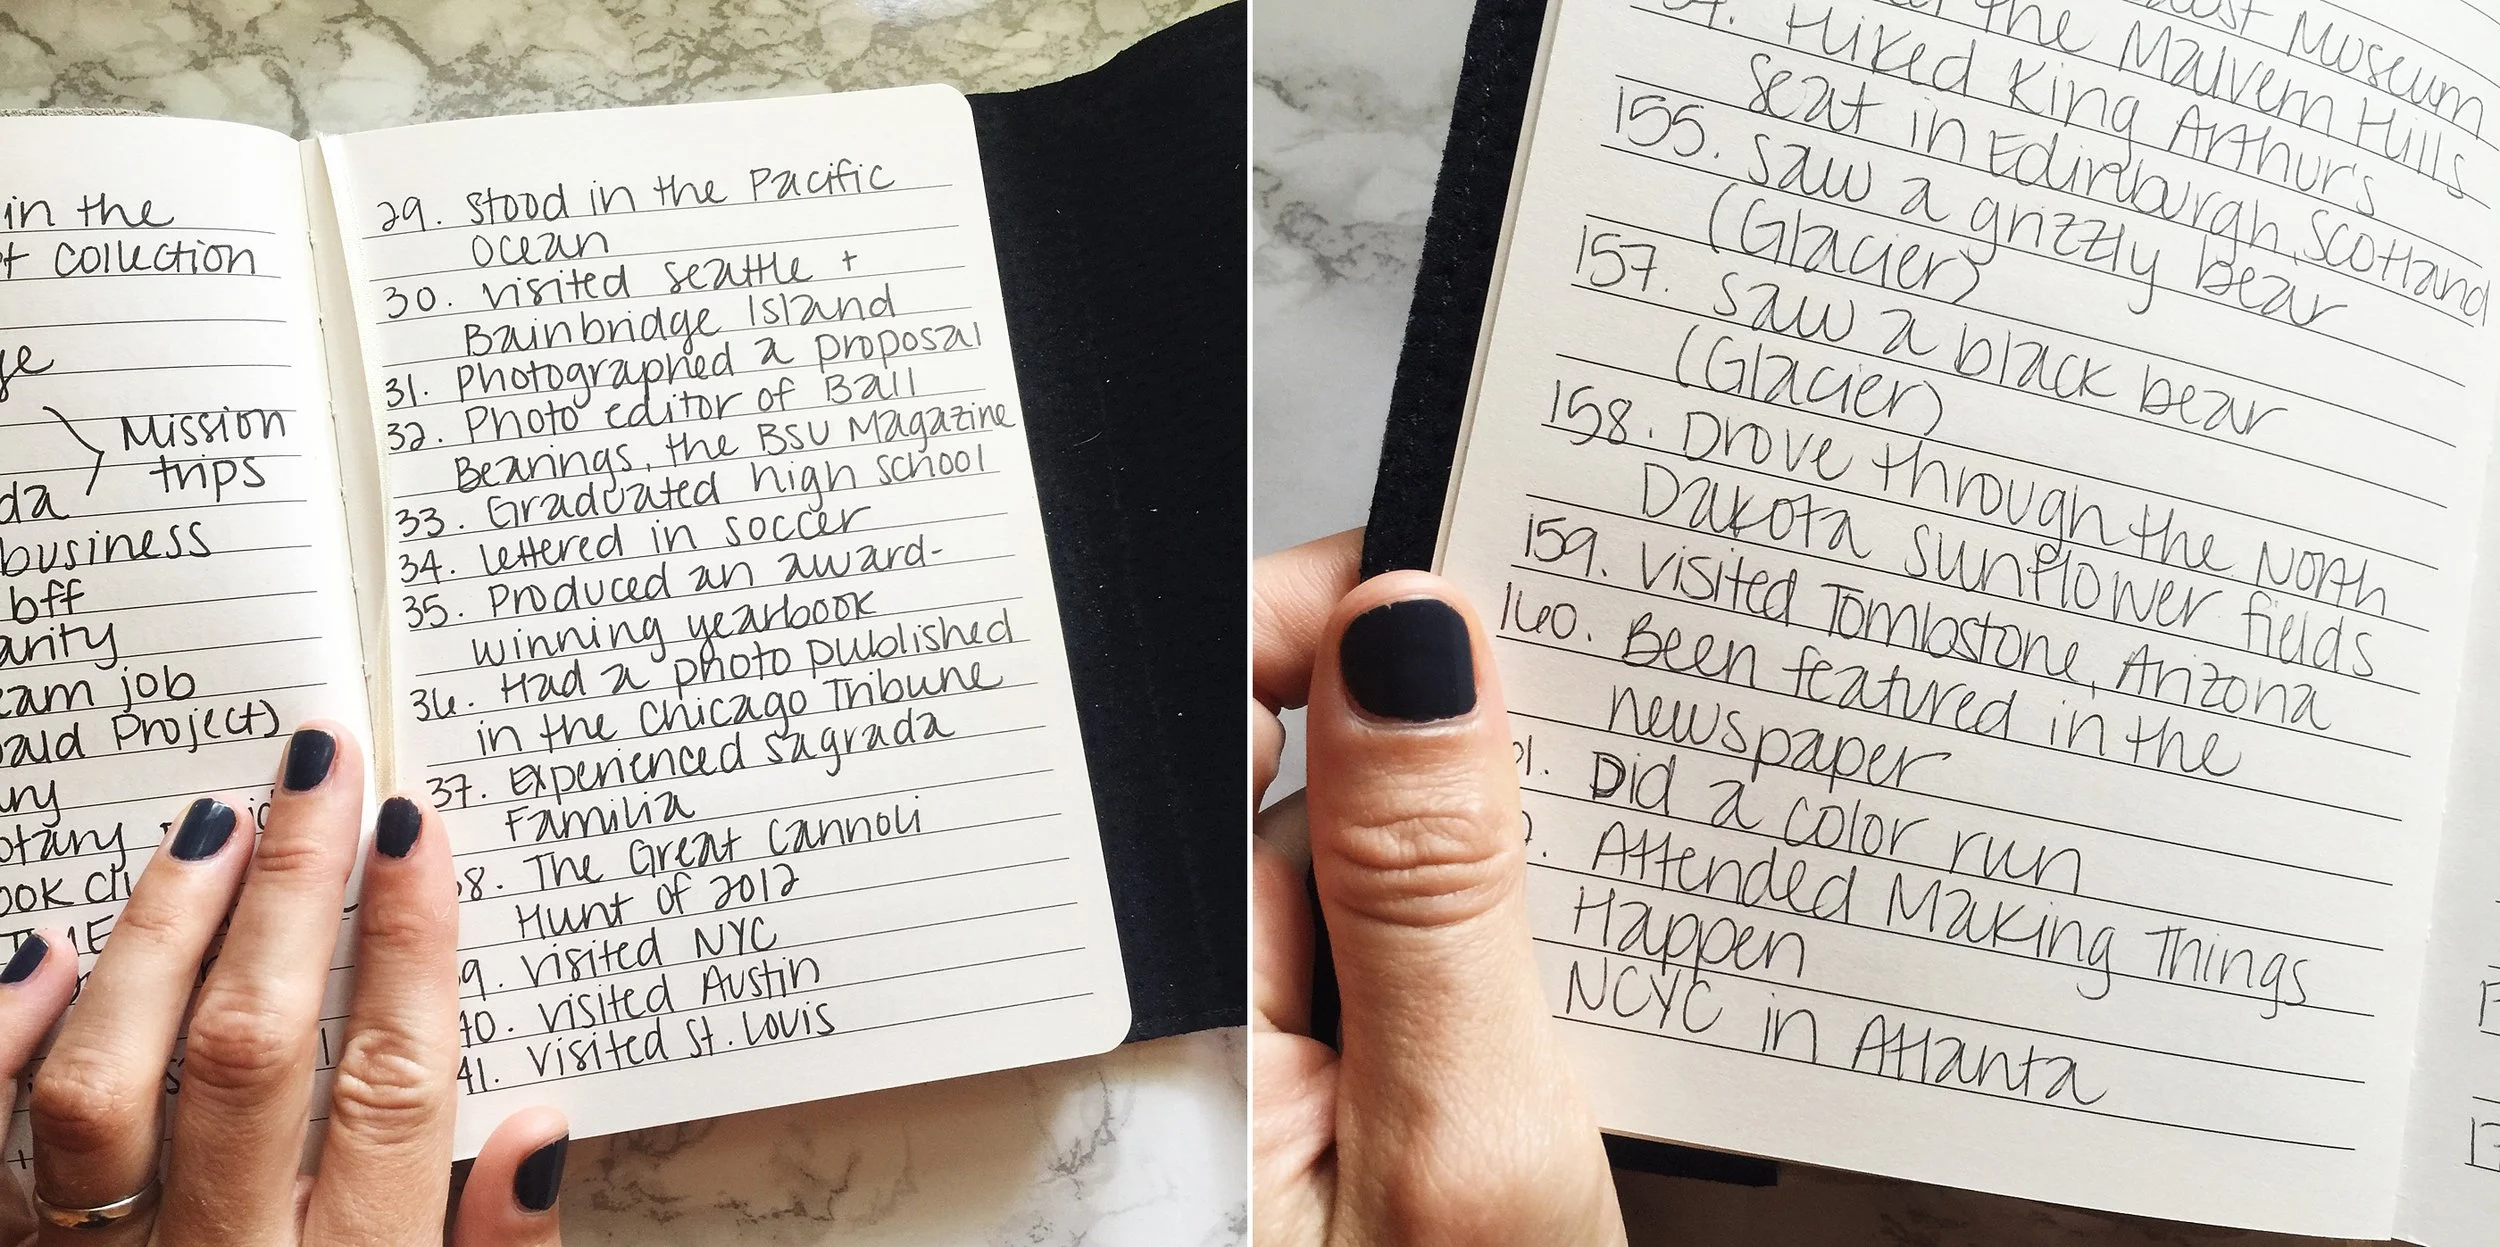 in the
collection
Mission
trips
business
bff
job
Project)
29. Stood in the Pacific
Ocean
30. Visited Seattle +
Bainbridge Island
31. Photographed a proposal
32. Photo editor of Ball
Bearings, the BSU Magazine
33. Graduated high school
34. Lettered in soccer
35. Produced an award-
winning yearbook
36. Had a photo published
in the Chicago Tribune
37. Experienced Sagrada
Familia
8. The Great Cannoli
Hunt of 2012
9. Visited NYC
40. Visited Austin
41. Visited St. Louis
Museum
the Malvern Hills
Hiked King Arthur's
Seat in Edinburgh, Scotland
155. Saw a grizzly bear
(Glacier)
157. Saw a black bear
(Glacier)
158. Drove through the North
Dakota sunflower fields
159. Visited Tombstone, Arizona
160. Been featured in the
newspaper
1. Did a color run
Attended Making Things
Happen
NCYC in Atlanta